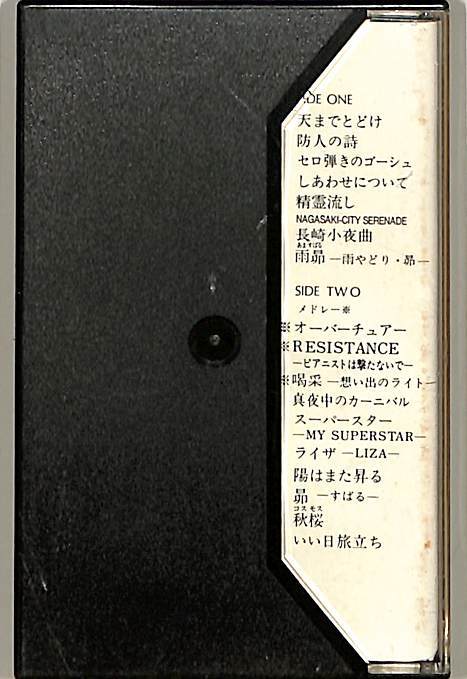 SIDE ONE
天までとどけ
防人の詩
セロ弾きのゴーシュ
しあわせについて
精霊流し
NAGASAKI-CITY SERENADE
長崎小夜曲
あますばる
雨昴 ―雨やどり・昴―
SIDE TWO
メドレー※
※オーバーチュアー
※RESISTANCE
―ピアニストは撃たないで―
※喝采 ―想い出のライト―
真夜中のカーニバル
スーパースター
―MY SUPERSTAR―
ライザ ―LIZA―
陽はまた昇る
昴 ―すばる―
コスモス
秋桜
いい日旅立ち